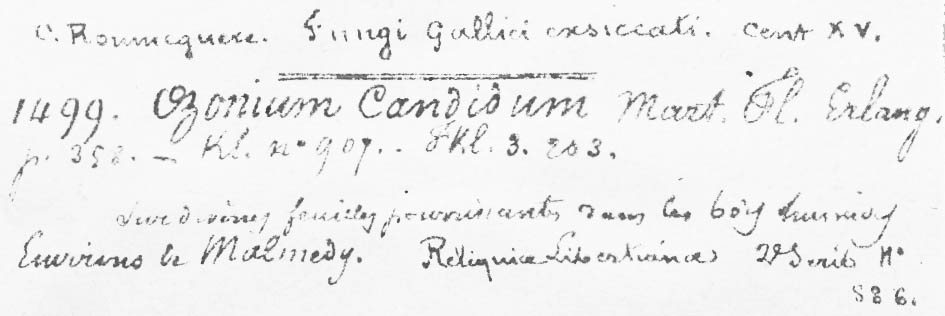 C. Roumeguere. Fungi Gallici exsiccati. Cent XV.
1499. Ozonium Candidum Mart. Fl. Erlang.
p. 358. — Kl. n° 907. . 3. 203.
feuilles pourrissants dans les bois humides
Environs de Malmedy. Reliquiae Libertianae 2e Serie N°
586.